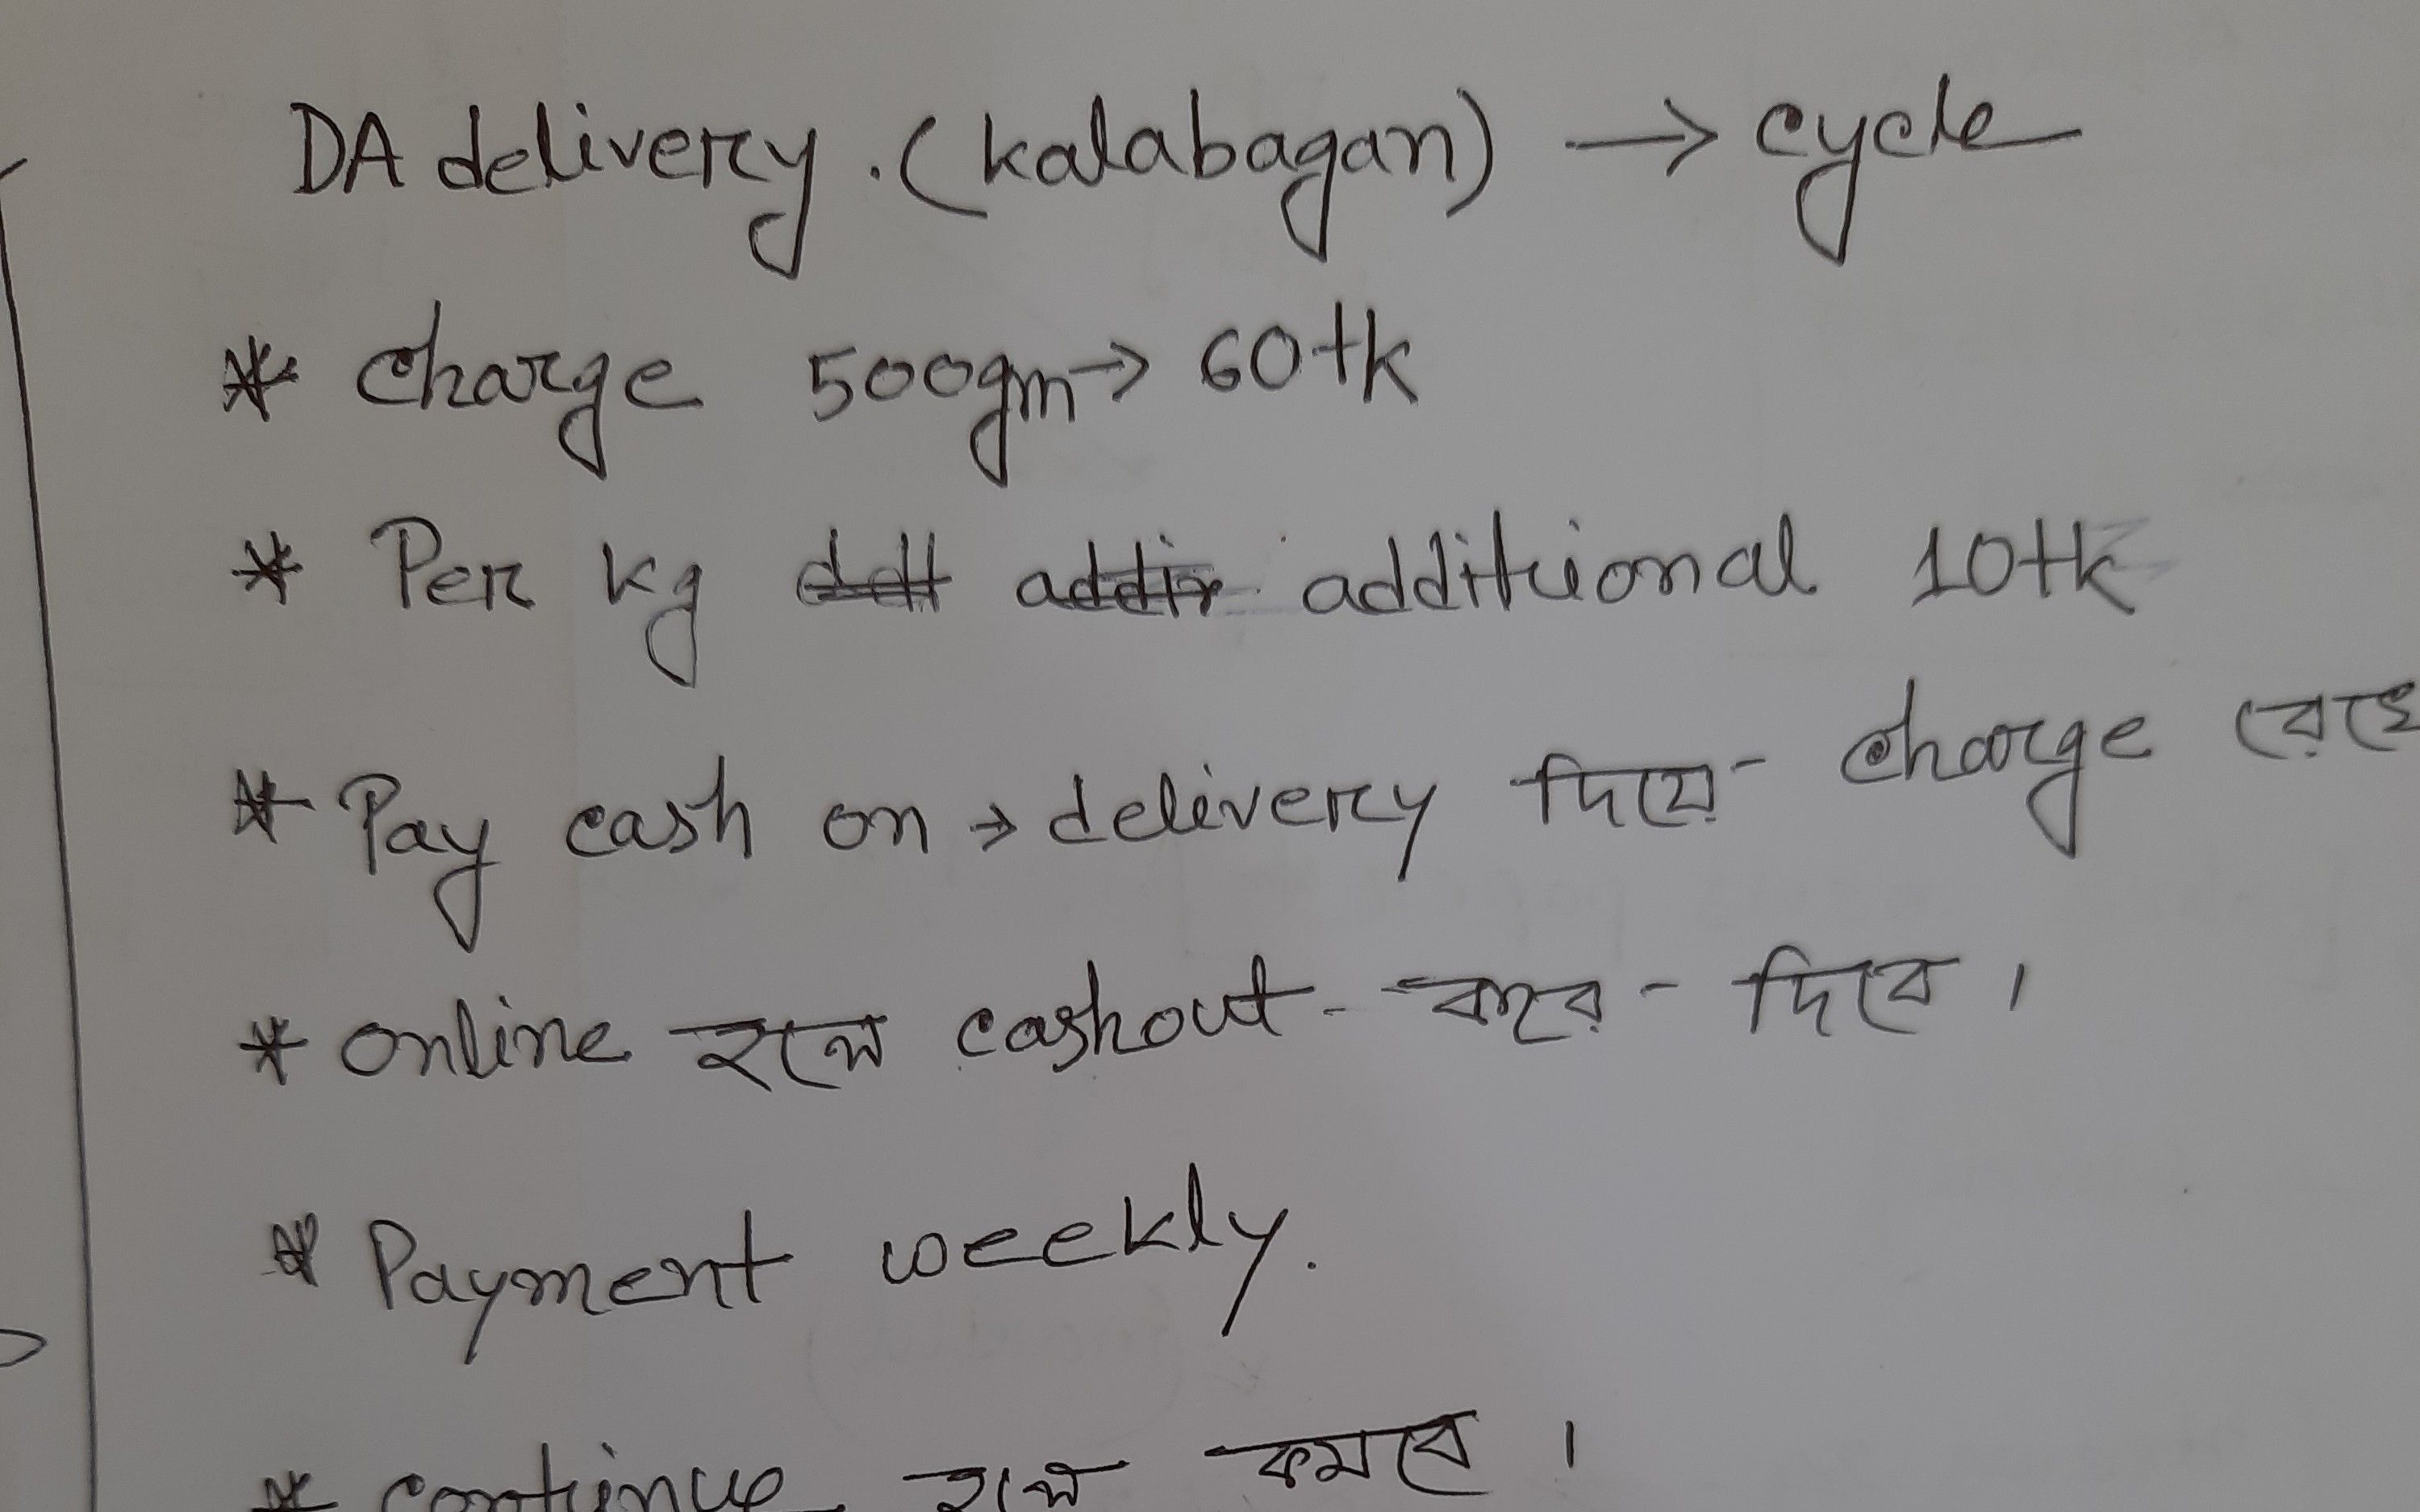 DA delivery. (kalabagan) → cycle
* charge 500gm → 60tk
* Per kg additional 10tk
* Pay cash on → delivery দিয়ে - charge রেখে
* online হলে cashout - করে - দিবে ।
* Payment weekly.
* continue হলে কমবে ।